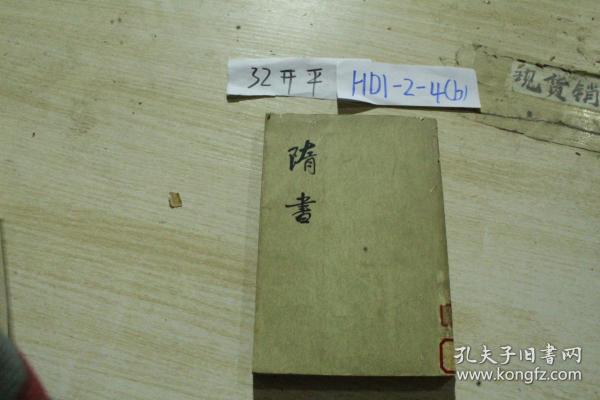 32开平
HD1-2-4(b)
现货销
隋書
孔夫子旧書网
www.kongfz.com